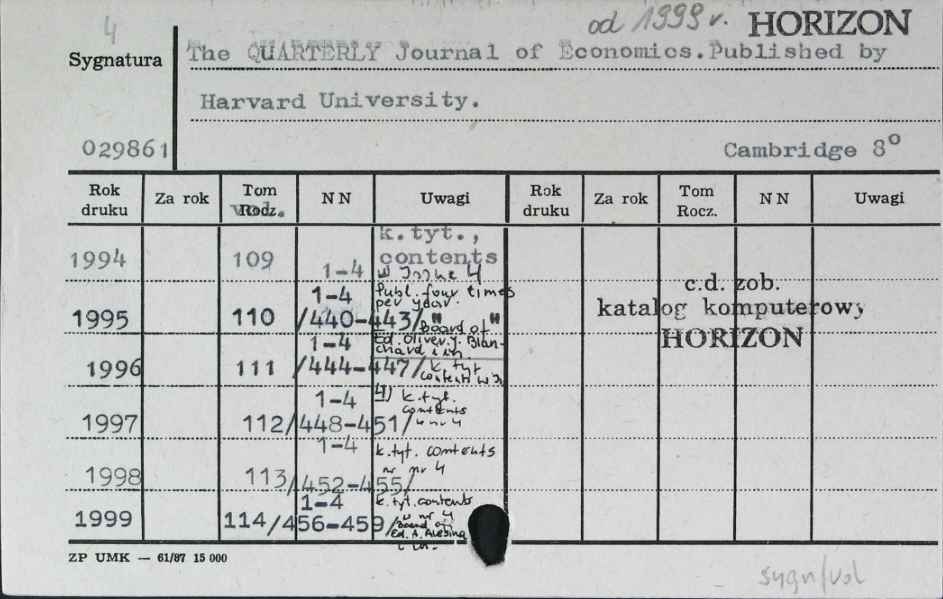 4 od 1999 r. HORIZON
Sygnatura The QUARTERLY Journal of Economics.Published by
Harvard University.
029861 Cambridge 8°
Rok druku Za rok Tom Rocz. vol. NN Uwagi Rok druku Za rok Tom Rocz. NN Uwagi
k.tyt.,
1994 109 1-4 contents
w Issue 4
Publ. four times
per year.
1995 110 1-4 /440-443/ "Board of"
Ed. Oliver J. Blan-
chard i in.
1996 111 1-4 /444-447/ k. tyt
contents w
4) k.tyt.
contents
1997 112 1-4 /448-451/ w nr 4
k.tyt. contents
nr 4
1998 113 1-4 /452-455/
k.tyt. contents
w nr 4
1999 114 1-4 /456-459/ Board of
Ed. A. Alesina
i in.
c.d. zob.
katalog komputerowy
HORIZON
ZP UMK — 61/87 15 000
sygn/vol